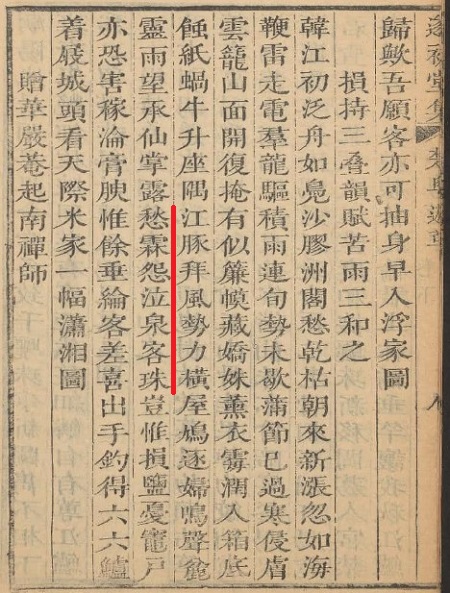 歸歟吾願客亦可抽身早入浮家圖
損持三叠韻賦苦雨三和之
韓江初泛舟如鳧沙膠洲閣愁乾枯朝來新漲忽如海
鞭雷走電羣龍驅積雨連旬勢未歇蒲節已過寒侵膚
雲籠山面開復掩有似簾幙藏嬌姝薰衣霉潤入箱底
蝕紙蝸牛升座隅江豚拜風勢力橫屋鳩逐婦鳴聲麄
靈雨望承仙掌露愁霖怨泣泉客珠豈惟損鹽憂竈戶
亦恐害稼淪膏腴惟餘垂綸客差喜出手釣得六六鱸
着屐城頭看天際米家一幅瀟湘圖
贈華嚴菴起南禪師